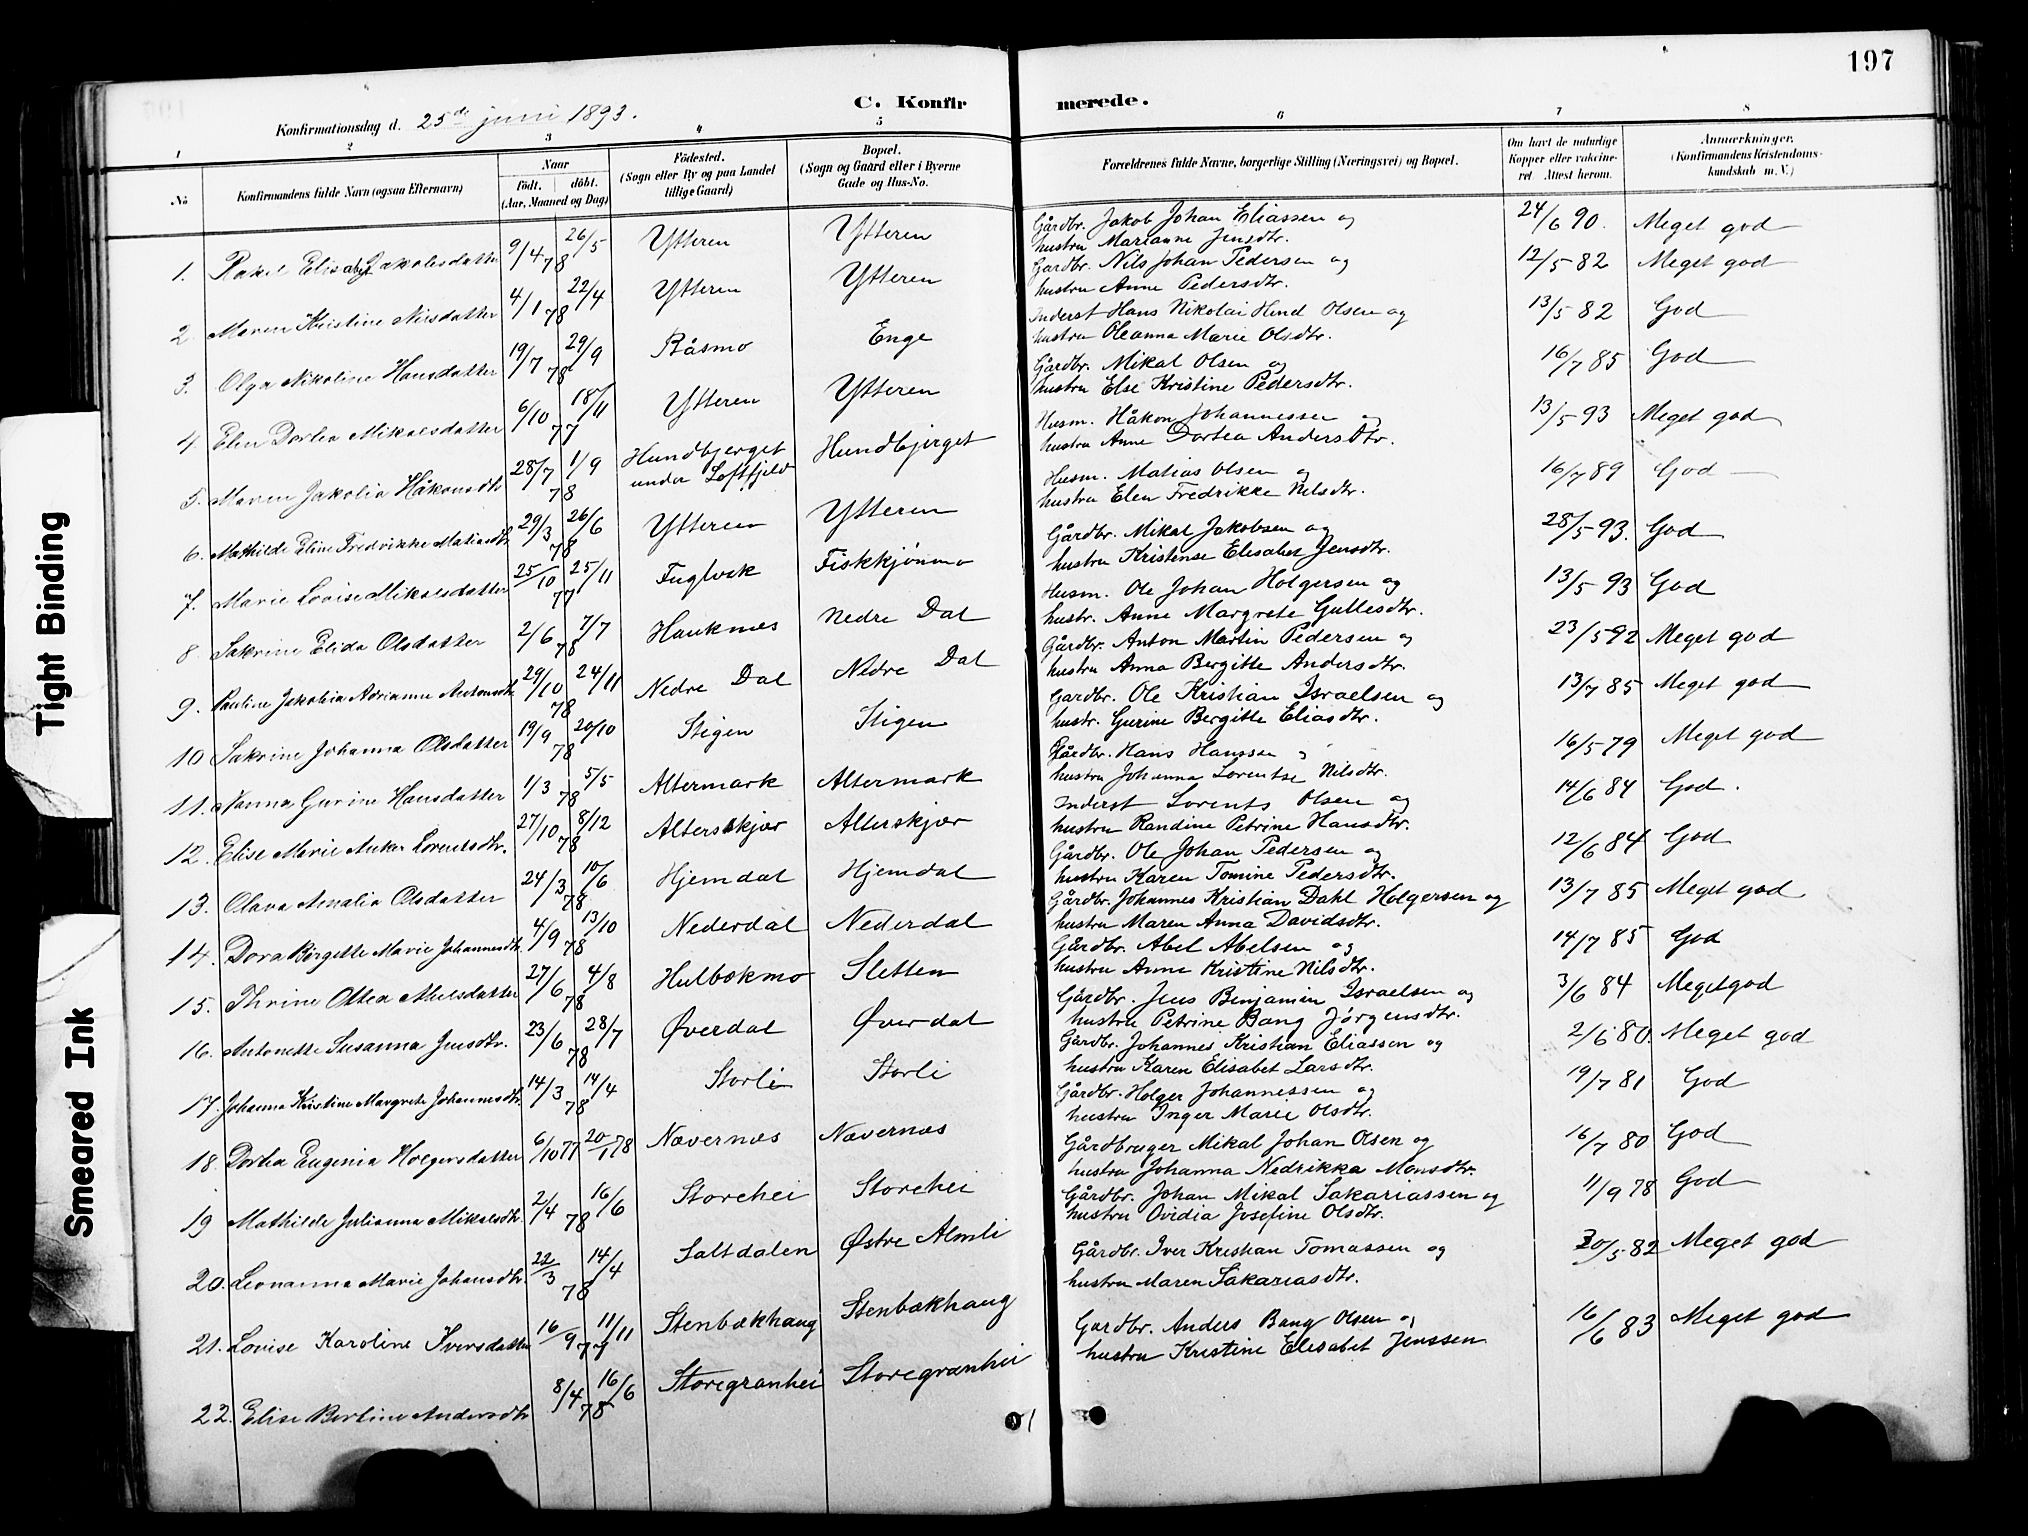 197
C. Konfirmerede.
Konfirmationsdag d. 25de juni 1893.
1 2 3 4 5 6 7 8
No
Konfirmandens fulde Navn (ogsaa Efternavn)
Naar
födt. döbt.
(Aar, Maaned og Dag)
Födested.
(Sogn eller By og paa Landet
tillige Gaard)
Bopæl.
(Sogn og Gaard eller i Byerne
Gade og Hus-No.
Forældrenes fulde Navne, borgerlige Stilling (Næringsvei) og Bopæl.
Om havt de naturlige
Kopper eller vaccine-
ret Attest herom.
Anmærkninger.
(Konfirmandens Kristendoms-
kundskab m. V.)
1. Rakel Elisabet Jakobsdatter 9/4 78 26/5 Ytteren Ytteren Gårdbr. Jakob Johan Eliassen og 24/6 90. Meget god
hustru Marianne Jensdtr.
2. Maren Kristine Nilsdatter 4/1 78 22/4 Ytteren Ytteren Gårdbr. Nils Johan Pedersen og 12/5 82 Meget god
hustru Anne Pedersdtr.
3. Olga Nikoline Hansdatter 19/7 78 29/9 Båsmo Enge Inderst Hans Nikolai Hind Olsen og 13/5 82 God
hustru Oleanna Marie Olsdtr.
4 Elen Dortea Mikalsdatter 6/10 77 18/11 Ytteren Ytteren Gårdbr. Mikal Olsen og 16/7 85 God
hustru Else Kristine Pedersdtr.
5. Maren Jakolia Håkonsdtr 28/7 78 1/9 Hundbjerget under Loftfjeld Hundbjerget Husm. Håkon Johannessen og 13/5 93 Meget god
hustru Anne Dortea Andersdtr.
6. Mathilde Eline Fredrikke Matiasdtr 29/3 78 26/6 Ytteren Ytteren Husm. Matias Olsen og 16/7 89 God
hustru Elen Fredrikke Nilsdtr.
7. Marie Lovise Mikalsdatter 25/10 77 25/11 Fuglvik Fiskkjønmo Gårdbr. Mikal Jakobsen og 28/5 93. God
hustru Kristense Elisabet Jensdtr.
8. Sakrine Elida Olsdatter 2/6 78 7/7 Hauknes Nedre Dal Husm. Ole Johan Holgersen og 13/5 93 God
hustr. Anne Margrete Gullesdtr.
9. Pauline Jakobia Adrianna Antonsdtr 29/10 78 24/11 Nedre Dal Nedre Dal Gårdbr. Anton Martin Pedersen og 23/5 92 Meget god
hustru Anna Bergitte Andersdtr.
10 Sakrine Johanna Olsdatter 19/9 78 20/10 Stigen Stigen Gardbr. Ole Kristian Israelsen og 13/7 85 Meget god
hustr. Gurine Bergitte Eliasdtr.
11. Nanna Gurine Hansdatter 1/3 78 5/5 Altermark Altermark Gårdbr. Hans Hanssen og 16/5 79 Meget god
hustru Johanna Lorentse Nilsdtr.
12. Elise Marie Anker Lorentsdtr. 27/10 78 8/12 Alterskjær Alterskjær Inderst Lorents Olsen og 14/6 84 God.
hustru Randine Petrine Hansdtr.
13. Olava Amalia Olsdatter 24/3 78 10/6 Hjemdal Hjemdal Gårdbr. Ole Johan Pedersen og 12/6 84 God
hustru Karen Tomine Pedersdtr.
14. Dora Birgitte Marie Johannesdtr. 4/9 78 13/10 Nederdal Nederdal Gårdbr. Johannes Kristian Dahl Holgersen og 13/7 85 Meget god
hustru Maren Anna Davidsdtr.
15. Thrine Ottea Abelsdatter 27/6 78 4/8 Hulbækmo Sletten Gårdbr. Abel Abelsen og 14/7 85 God
hustru Anne Kristine Nilsdtr.
16. Antonette Susanna Jensdtr. 23/6 78 28/7 Øverdal Øverdal Gårdbr. Jens Benjamin Israelsen og 3/6 84 Meget god
hustru Petrine Bang Jörgensdtr.
17. Johanna Kristine Margrete Johannesdtr. 14/3 78 14/4 Storli Storli Gårdbr. Johannes Kristian Eliassen og 2/6 80. Meget god
hustru Karen Elisabet Larsdtr.
18. Dortea Eugenia Holgersdatter 6/10 77 20/1 78 Nævernes Nævernes Gårdbr. Holger Johannessen og 19/7 81 God
hustru Inger Marie Olsdtr.
19 Mathilde Julianna Mikalsdtr. 2/4 78 16/6 Storehei Storehei Gårdbruger Mikal Johan Olsen og 16/7 80 God
hustru Johanna Nedrikka Monsdtr.
20. Leonanna Marie Johansdtr. 22/3 78 14/4 Saltdalen Østre Almli Gårdbr. Johan Mikal Sakariassen og 11/9 78 God
hustru Ovidia Josefine Olsdtr.
21. Lovise Karoline Iversdatter 16/9 77 11/11 Stenbækhaug Stenbækhaug Gårdbr. Iver Kristian Tomassen og 20/5 82 Meget god
hustru Maren Sakariasdtr.
22. Elise Bertine Andersdtr 8/4 78 16/6 Storegranhei Storegranhei Gardbr. Anders Bang Olsen og 16/6 83 Meget god
hustru Kristine Elisabet Jenssen
Tight Binding
Smeared Ink